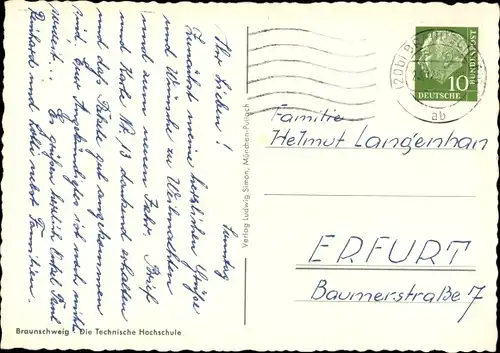 Sonntag
Ihr Lieben!
Zunächst meine herzlichen Grüße
und Wünsche zu Weihnachten
und zum neuen Jahr. Brief
und Karte Nr. 13 dankend erhalten
und daß Pakete gut angekommen
sind. Euer Angekündigtes ist noch nicht
Es grüßen herzlich Onkel Paul
Richard und nebst Familien.
Braunschweig - Die Technische Hochschule
Verlag Ludwig Simon, München-Pullach
(20b) BRAUNSCHWEIG
ab
DEUTSCHE
BUNDESPOST
10
Familie
Helmut Langenhan
ERFURT
Baumerstraße 7